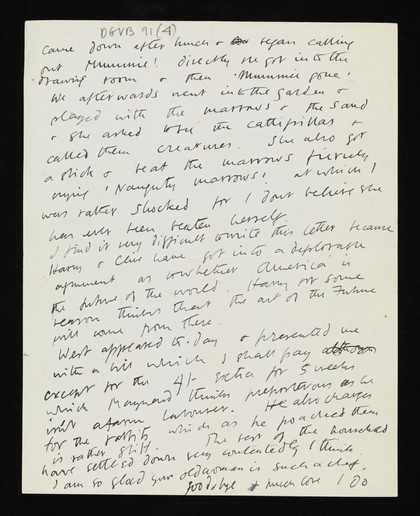 DGVB 91(4)
came down after lunch & began calling
out Mummie! directly she got into the
'drawing room & then 'Mummie gone'.
We afterwards went into the garden &
played with the marrows & the sand
& she asked to see the catterpillas &
called them creatures. She also got
a stick & beat the marrows fiercely
crying 'Naughty marrows' at which I
was rather shocked for I dont believe she
has ever been beaten herself.
I find it very difficult to write this letter because
Harry & Clive have got into a deplorable
argument as to whether America is
the future of the world. Harry for some
reason thinks that the art of the Future
will come from there.
West appeared to-day & presented me
with a bill which I shall pay
except for the 4/- extra for 5 weeks
which Maynard thinks preposterous as he
isn't a farm labourer. He also charges
for the rabbits which as he poached them
is rather stiff. The rest of the household
have settled down very contentedly I think
I am so glad your old woman is such a
Goodbye & much love I do